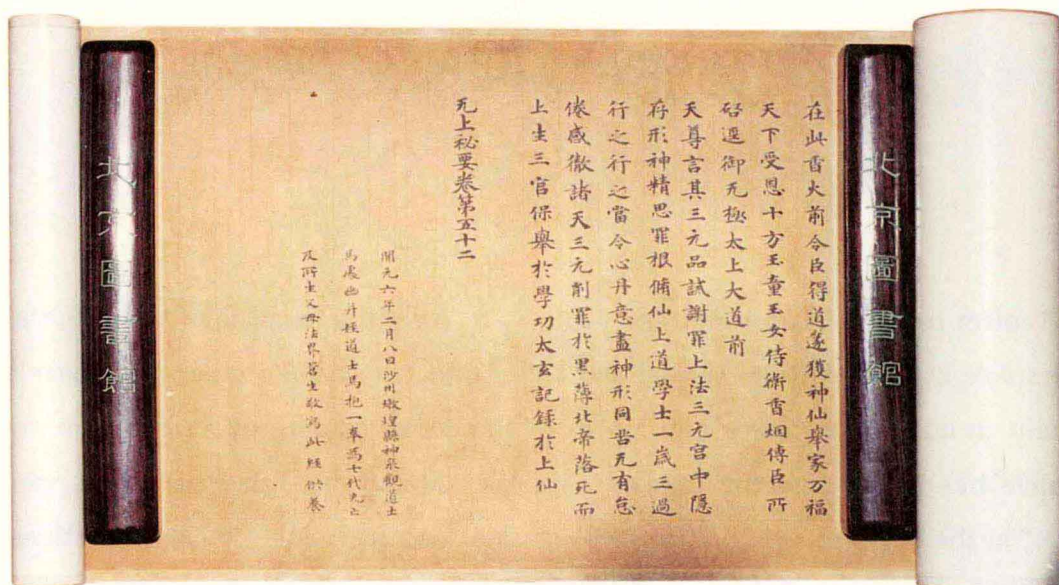 北京圖書館
在此香火前令臣得道遂獲神仙舉家万福
天下受恩十方玉童玉女侍衛香烟傳臣所
啓逕御无極太上大道前
天尊言其三元品誡謝罪上法三元宫中隱
存形神精思罪根脩仙上道學士一歲三過
行之行之當令心丹意盡神形同苦无有怠
倦感徹諸天三元削罪於黑薄北帝落死而
上生三官保舉於學功太玄記錄於上仙
无上秘要卷第五十二
開元六年二月八日沙州燉煌縣神泉觀道士
馬處幽并姪道士馬抱一奉爲七代先亡
及所生父母法界蒼生敬寫此經供養
北京圖書館